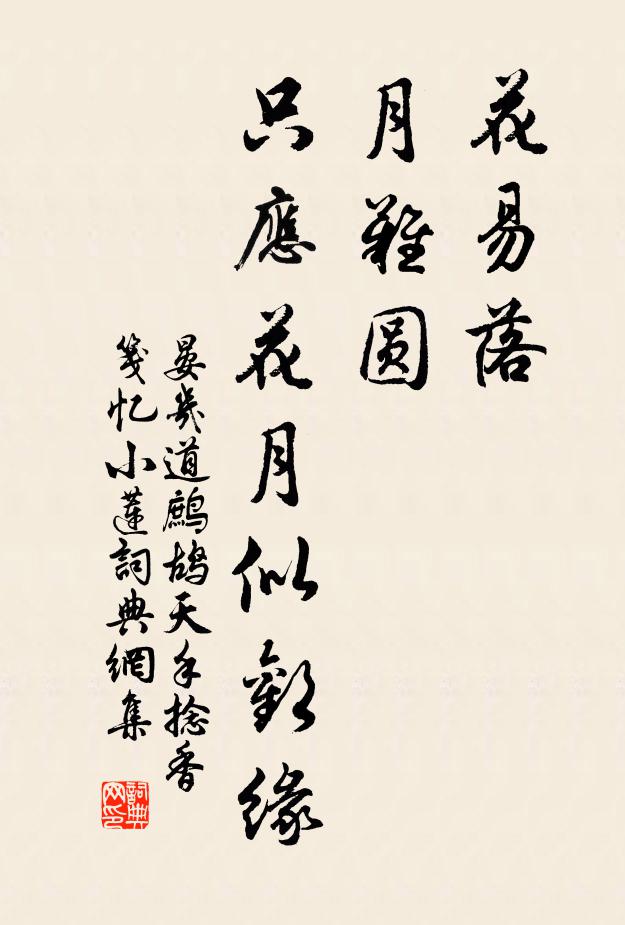 花易落
月難圓
只應花月似歡緣
晏幾道鷓鴣天手撚香
箋忆小蓮詞典網集
詞典网印